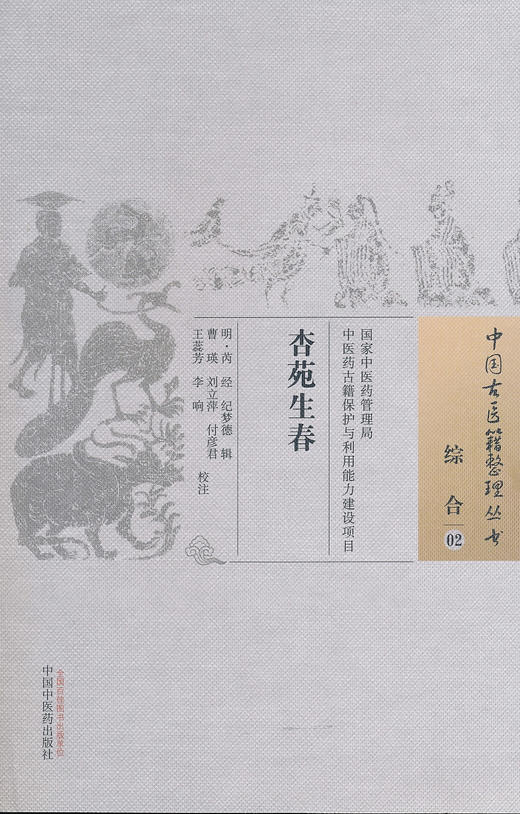 中国古医籍整理丛书
综合
02
国家中医药管理局
中医药古籍保护与利用能力建设项目
杏苑生春
明·芮 经 纪梦德 辑
曹 瑛 刘立萍 付彦君
王蕊芳 李 响
校注
全国百佳图书出版单位
中国中医药出版社